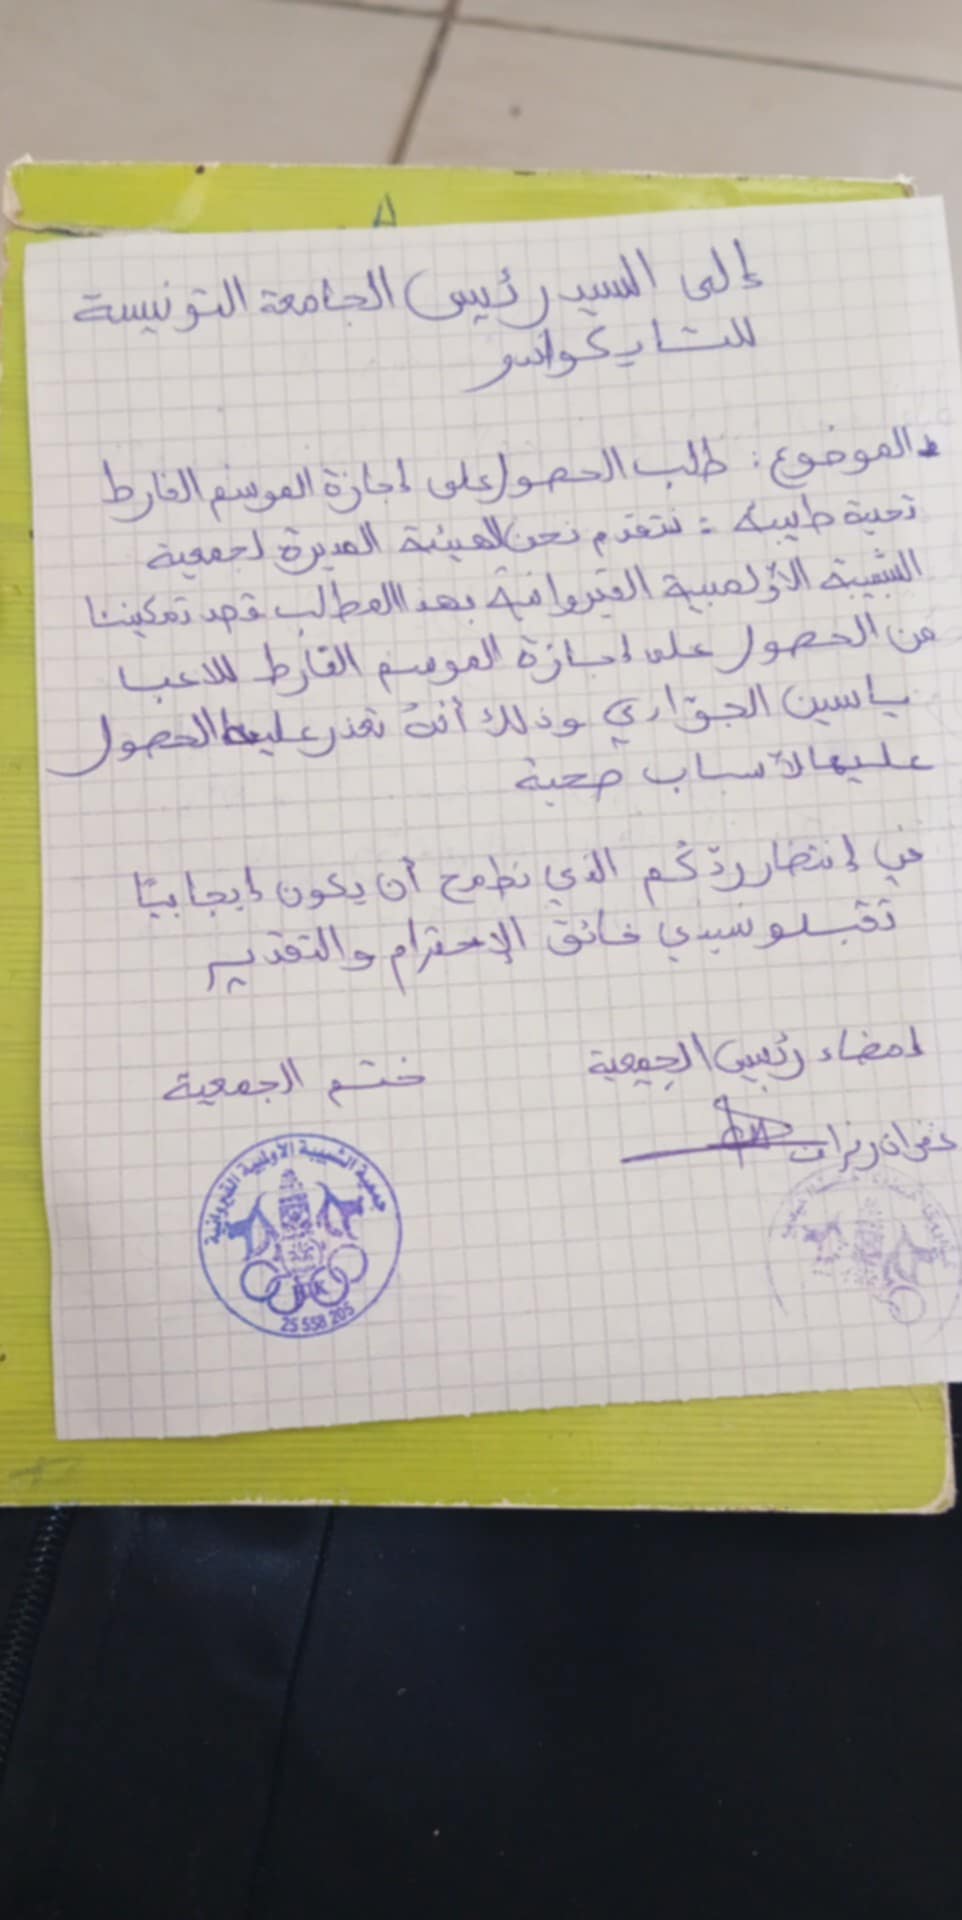 إلى السيد رئيس الجامعة التونيسة
للتايكواندو
الموضوع : طلب الحصول على إجازة الموسم الفارط
تحية طيبة : نتقدم نحن الهيئة المديرة لجمعية
الشبيبة الأولمبية القيروانية بهذا المطلب قصد تمكيننا
من الحصول على إجازة الموسم الفارط للاعب
ياسين الجوّاري وذلك أنهُ تعذر عليه الحصول
عليها لأسباب صحية
في إنتضار ردّكم الذي نطمح أن يكون إيجابيّا
تقبلو سيدي فائق الإحترام والتقدير
إمضاء رئيس الجمعية
ختم الجمعية
جمعية الشبيبة الأولمبية القيروانية
25 558 205